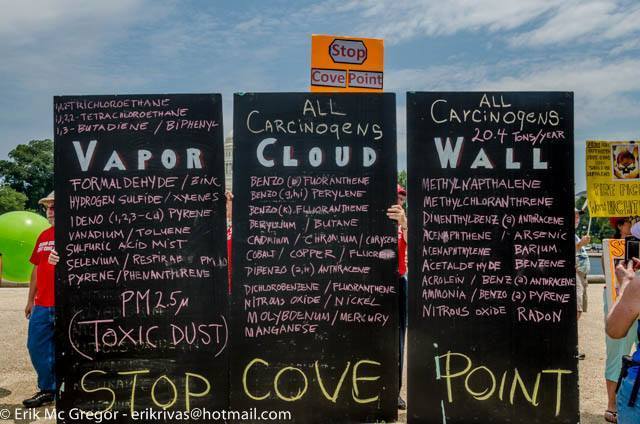 Stop
Cove Point
1,1,2-TRICHLOROETHANE
1,1,2,2-TETRACHLOROETHANE
1,3-BUTADIENE / BIPHENYL
VAPOR
FORMALDEHYDE / ZINC
HYDROGEN SULFIDE / XYLENES
IDENO (1,2,3-cd) PYRENE
VANADIUM / TOLUENE
SULFURIC ACID MIST
SELENIUM / RESPIRABLE PM
PYRENE / PHENANTHRENE
PM 2.5µ
(TOXIC DUST)
STOP
ALL
CARCINOGENS
CLOUD
BENZO (b) FLUORANTHENE
BENZO (g,h,i) PERYLENE
BENZO (k) FLUORANTHENE
BERYLLIUM / BUTANE
CADMIUM / CHROMIUM / CHRYSENE
COBALT / COPPER / FLUORENE
DIBENZO (a,h) ANTHRACENE
DICHLOROBENZENE / FLUORANTHENE
NITROUS OXIDE / NICKEL
MOLYBDENUM / MERCURY
MANGANESE
COVE
ALL
CARCINOGENS
20.4 TONS/YEAR
WALL
METHYLNAPTHALENE
METHYLCHLORANTHRENE
DIMENTHYLBENZ (a) ANTHRACENE
ACENAPHTHENE / ARSENIC
ACENAPHTYLENE BARIUM
ACETALDEHYDE BENZENE
ACROLEIN / BENZ (a) ANTHRACENE
AMMONIA / BENZO (a) PYRENE
NITROUS OXIDE RADON
POINT
© Erik Mc Gregor - erikrivas@hotmail.com